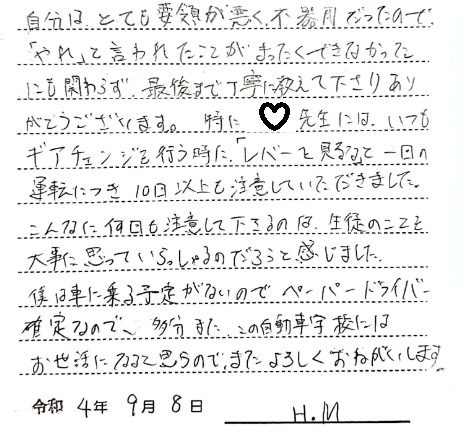 自分は、とても要領が悪く、不器用だったので、
「やれ」と言われたことがまったくできなかった
にも関わらず、最後まで丁寧に教えて下さりあり
がとうございます。特に ♡ 先生には、いつも
ギアチェンジを行う時に、「レバーを見るな」と一日の
運転につき10回以上も注意していただきました。
こんなに何回も注意して下さるのは、生徒のことを
大事に思っていらっしゃるのだろうと感じました。
僕は車に乗る予定がないのでペーパードライバー
確定なので、多分また、この自動車学校には
お世話になると思うので、またよろしくおねがいします。
令和 4年 9月 8日 H.M